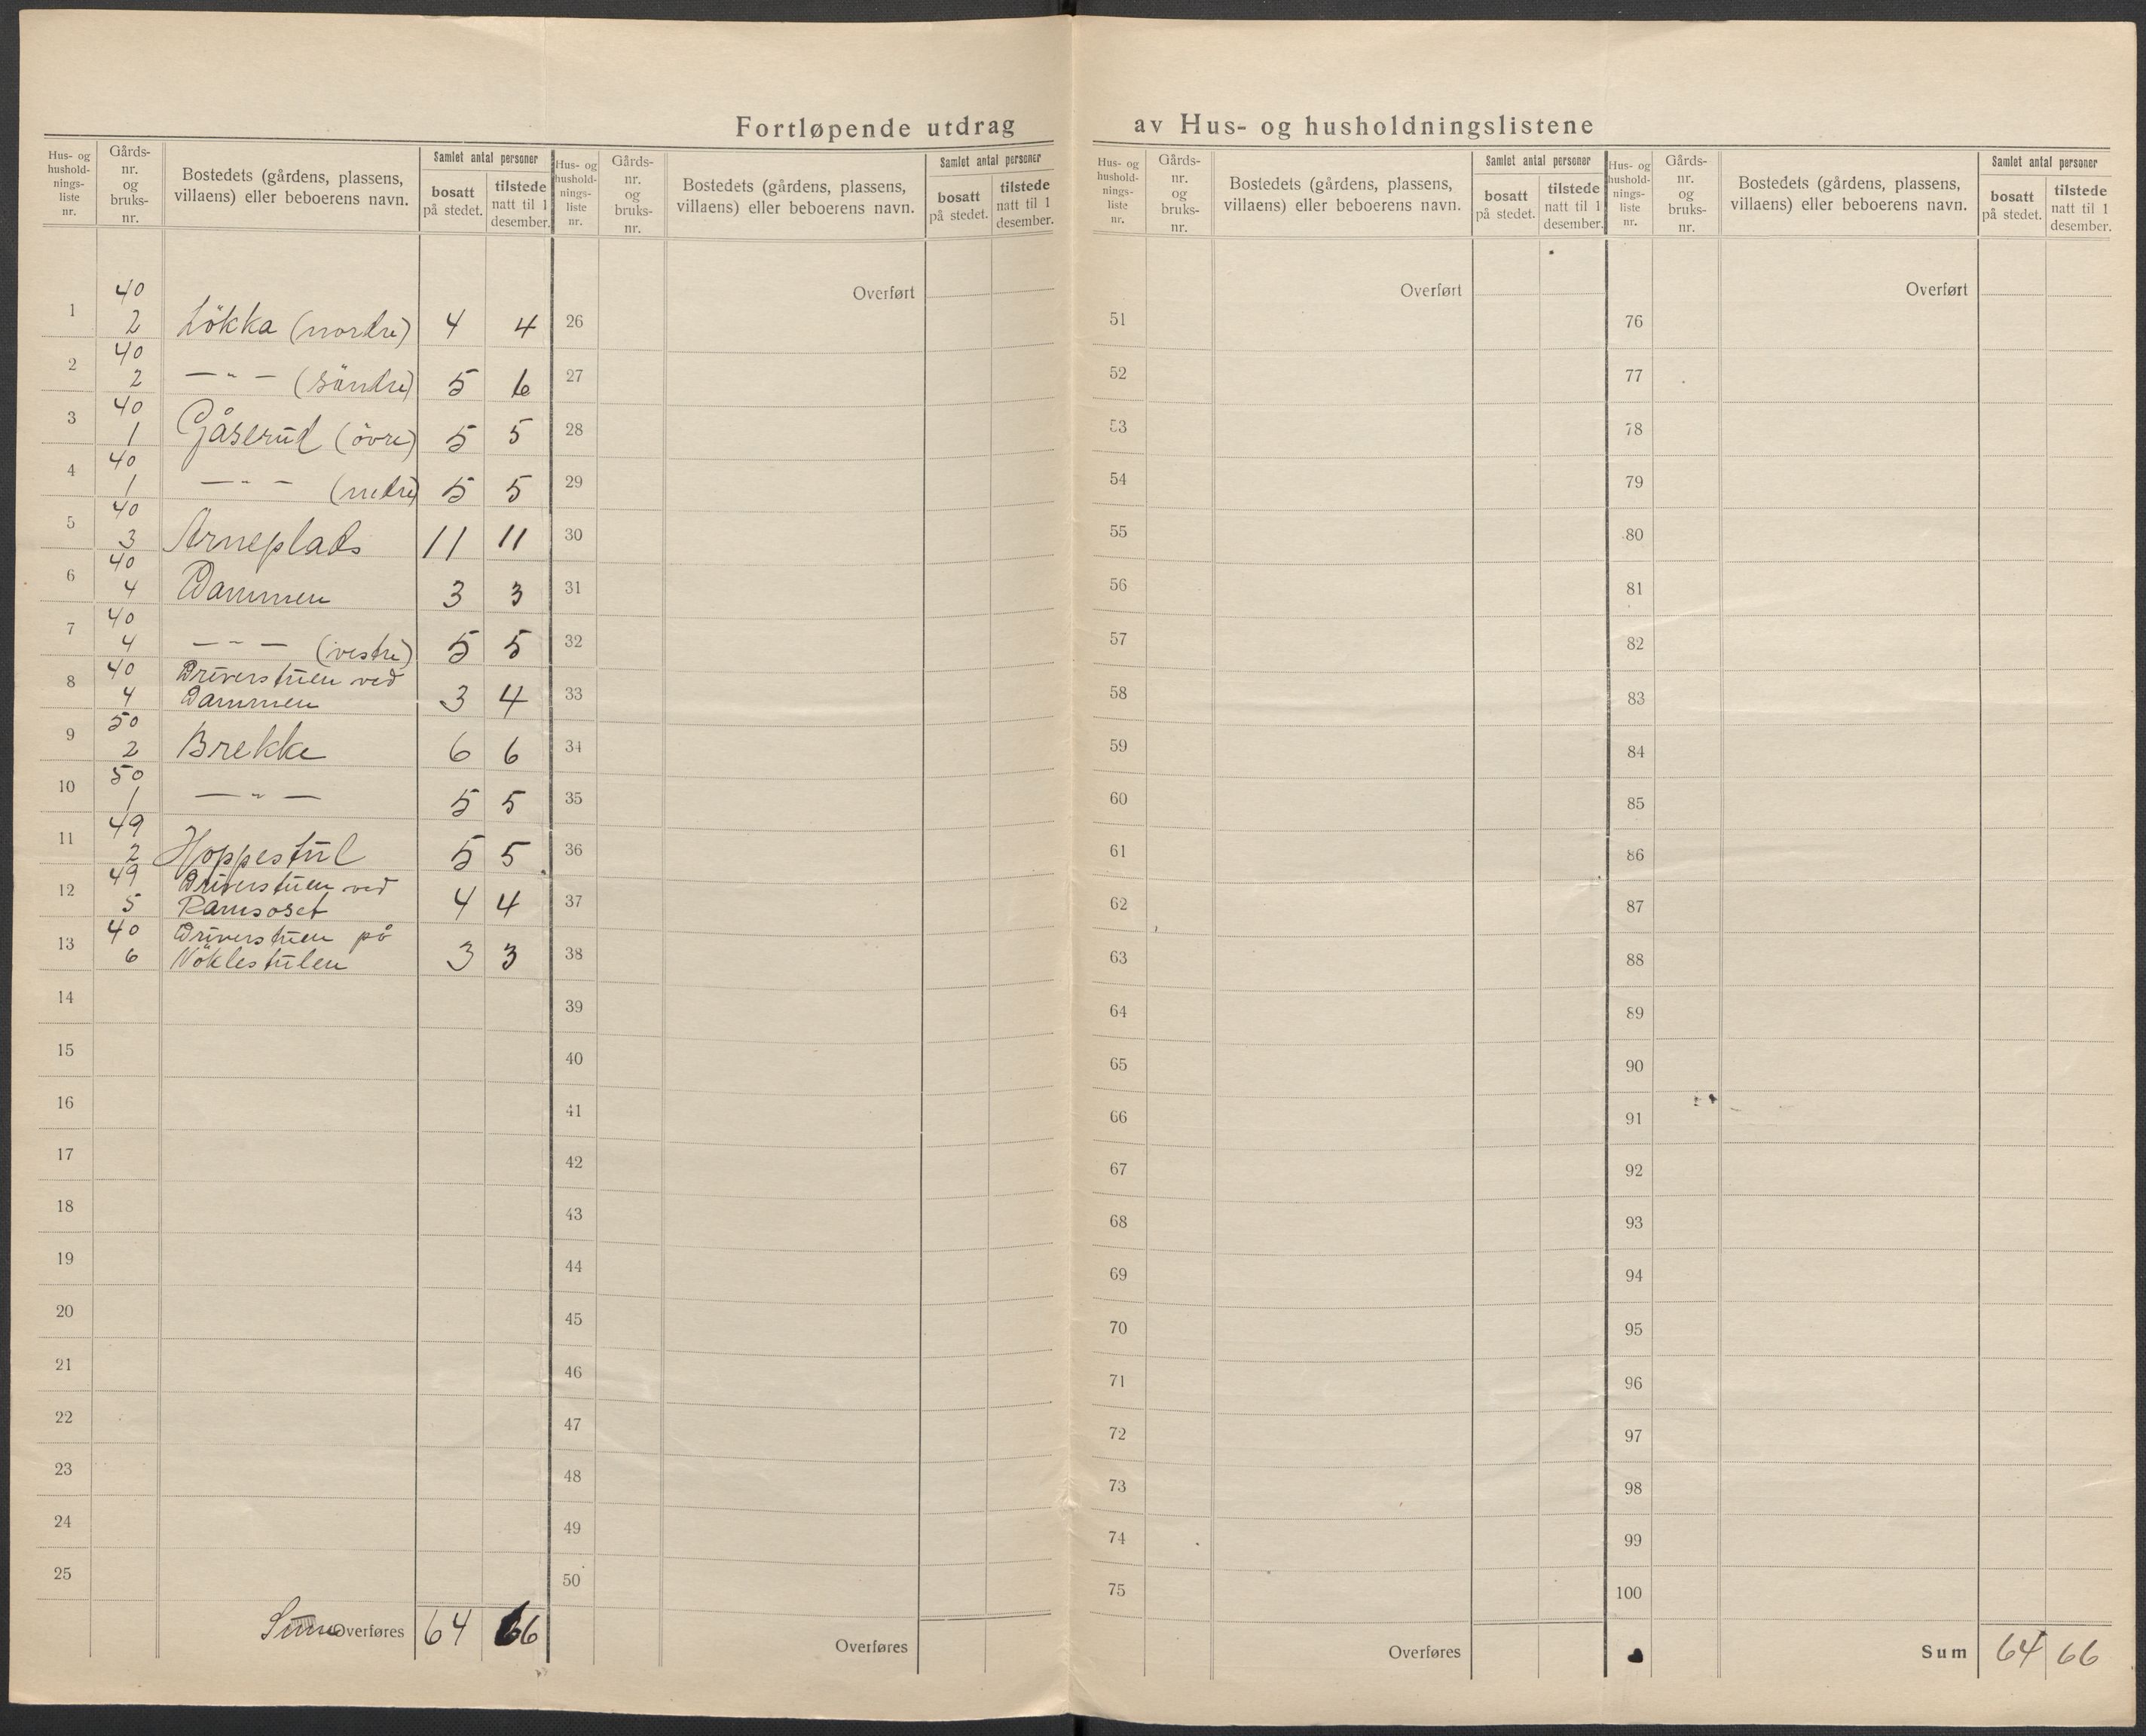 Fortløpende utdrag av Hus- og husholdningslistene
Hus- og
hushold-
nings-
liste
nr.
Gårds-
nr.
og
bruks-
nr.
Bostedets (gårdens, plassens,
villaens) eller beboerens navn.
Samlet antal personer
bosatt
på stedet.
tilstede
natt til 1
desember.
1 40 2 Lökka (nordre) 4 4
2 40 2 — " — (söndre) 5 6
3 40 1 Gåserud (övre) 5 5
4 40 1 — " — (nedre) 5 5
5 40 3 Arneplads 11 11
6 40 4 Dammen 3 3
7 40 4 — " — (vestre) 5 5
8 40 4 Driverstuen ved
Dammen 3 4
9 50 2 Brekke 6 6
10 50 1 — " — 5 5
11 49 2 Hoppestul 5 5
12 49 5 Driverstuen ved
Ramsoset 4 4
13 40 6 Driverstuen på
Nöklestulen 3 3
14
15
16
17
18
19
20
21
22
23
24
25
Sum Overføres 64 66
Hus- og
hushold-
nings-
liste
nr.
Gårds-
nr.
og
bruks-
nr.
Bostedets (gårdens, plassens,
villaens) eller beboerens navn.
Samlet antal personer
bosatt
på stedet.
tilstede
natt til 1
desember.
Overført
26
27
28
29
30
31
32
33
34
35
36
37
38
39
40
41
42
43
44
45
46
47
48
49
50
Overføres
Hus- og
hushold-
nings-
liste
nr.
Gårds-
nr.
og
bruks-
nr.
Bostedets (gårdens, plassens,
villaens) eller beboerens navn.
Samlet antal personer
bosatt
på stedet.
tilstede
natt til 1
desember.
Overført
51
52
53
54
55
56
57
58
59
60
61
62
63
64
65
66
67
68
69
70
71
72
73
74
75
Overføres
Hus- og
hushold-
nings-
liste
nr.
Gårds-
nr.
og
bruks-
nr.
Bostedets (gårdens, plassens,
villaens) eller beboerens navn.
Samlet antal personer
bosatt
på stedet.
tilstede
natt til 1
desember.
Overført
76
77
78
79
80
81
82
83
84
85
86
87
88
89
90
91
92
93
94
95
96
97
98
99
100
Sum 64 66